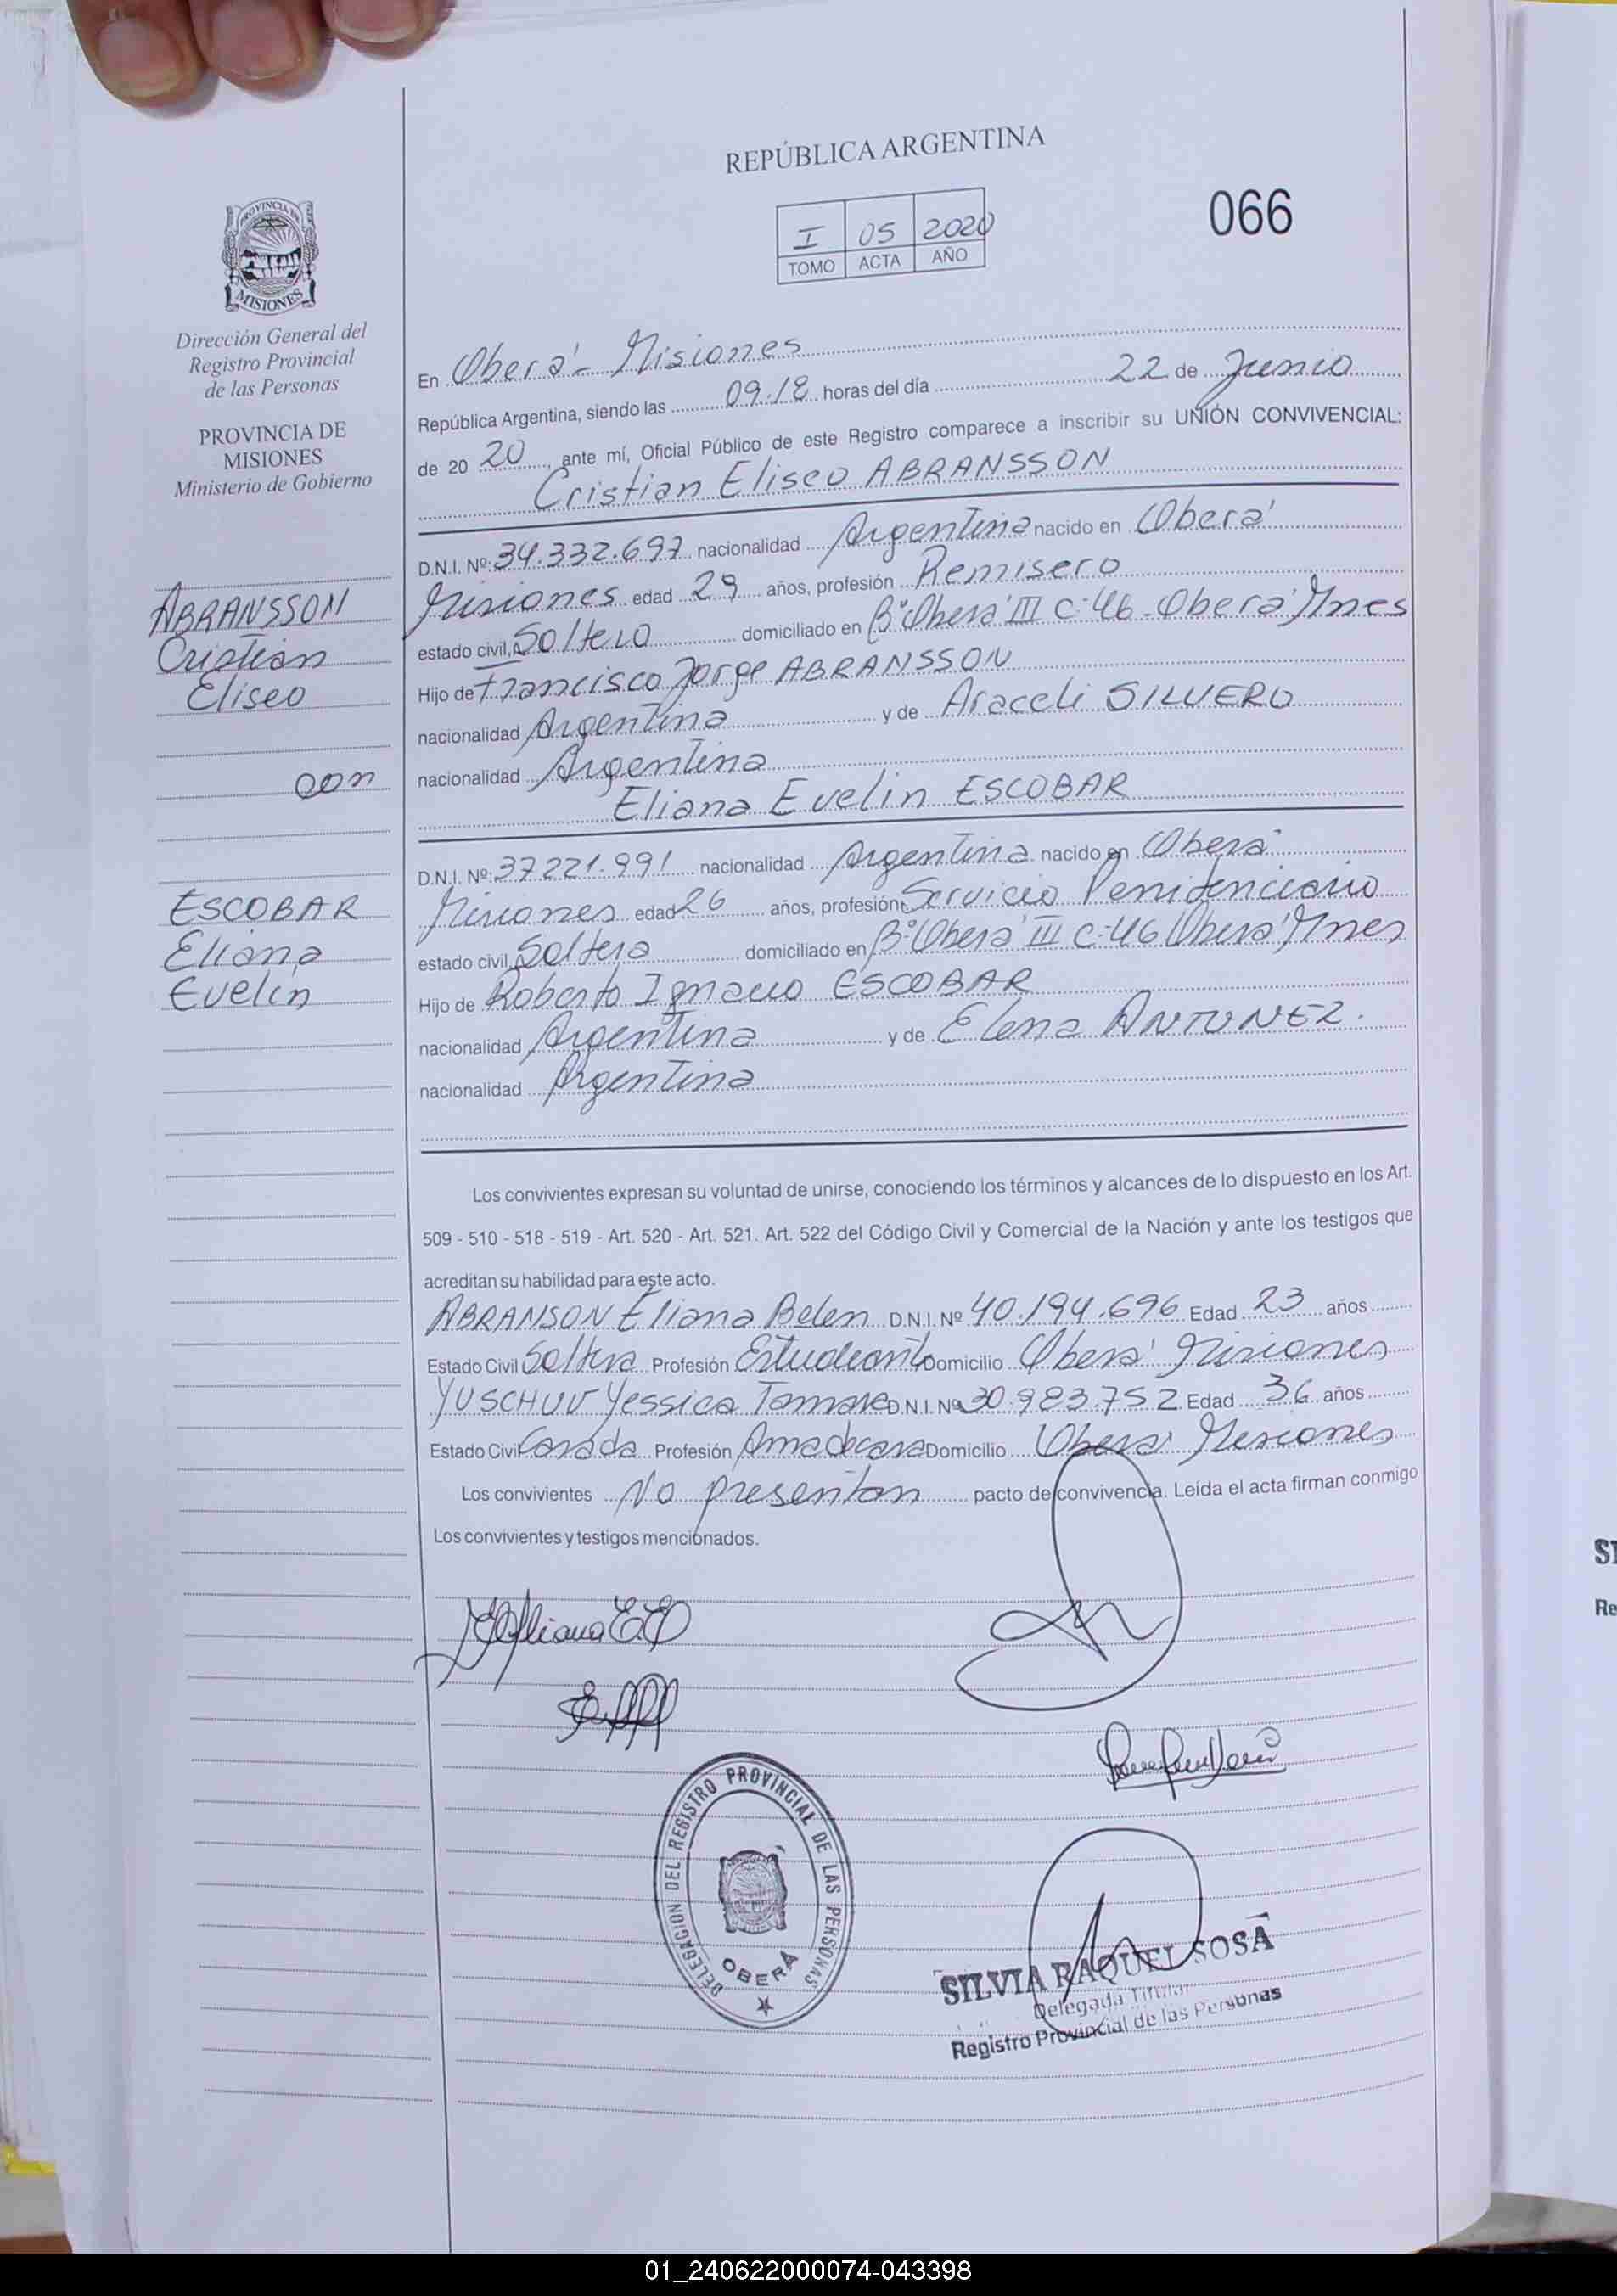 REPÚBLICA ARGENTINA
066
I 05 2020
TOMO ACTA AÑO
PROVINCIA DE
MISIONES
Dirección General del
Registro Provincial
de las Personas
PROVINCIA DE
MISIONES
Ministerio de Gobierno
ABRANSSON
Cristian
Eliseo
con
ESCOBAR
Eliana
Evelin
En Oberá - Misiones
República Argentina, siendo las 09.18 horas del día 22 de Junio
de 20 20, ante mí, Oficial Público de este Registro comparece a inscribir su UNIÓN CONVIVENCIAL:
Cristian Eliseo ABRANSSON
D.N.I. Nº: 34.332.697 nacionalidad Argentina nacido en Oberá
Misiones edad 29 años, profesión Remisero
estado civil, Soltero domiciliado en Bº Oberá III C-46 - Oberá Mnes
Hijo de Francisco Jorge ABRANSSON
nacionalidad Argentina y de Araceli SILVERO
nacionalidad Argentina
Eliana Evelin ESCOBAR
D.N.I. Nº: 37221.991 nacionalidad Argentina nacido en Oberá
Misiones edad 26 años, profesión Servicio Penitenciario
estado civil, Soltera domiciliado en Bº Oberá III C-46 Oberá Mnes
Hijo de Roberto Ignacio ESCOBAR
nacionalidad Argentina y de Elena ANTUNEZ.
nacionalidad Argentina
Los convivientes expresan su voluntad de unirse, conociendo los términos y alcances de lo dispuesto en los Art.
509 - 510 - 518 - 519 - Art. 520 - Art. 521. Art. 522 del Código Civil y Comercial de la Nación y ante los testigos que
acreditan su habilidad para este acto.
ABRANSON Eliana Belen D.N.I. Nº 40.194.696 Edad 23 años
Estado Civil Soltera Profesión Estudiante Domicilio Oberá Misiones
YUSCHUV Yessica Tamara D.N.I. Nº 30.983.752 Edad 36 años
Estado Civil Casada Profesión Ama de casa Domicilio Oberá Misiones
Los convivientes No presentan pacto de convivencia. Leída el acta firman conmigo
Los convivientes y testigos mencionados.
DELEGACION DEL REGISTRO PROVINCIAL DE LAS PERSONAS
OBERÁ
SILVIA RAQUEL SOSA
Delegada Titular
Registro Provincial de las Personas
SI
Re
01_240622000074-043398